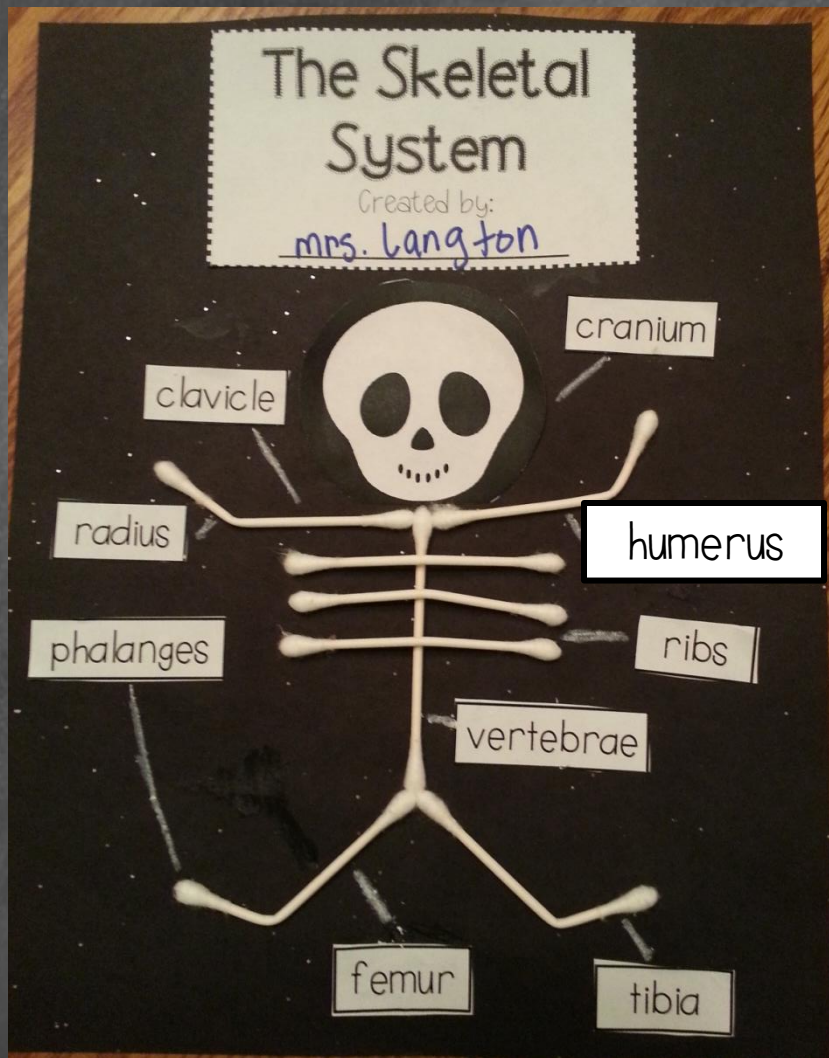 The Skeletal
System
Created by:
mrs. Langton
cranium
clavicle
radius
humerus
phalanges
ribs
vertebrae
femur
tibia